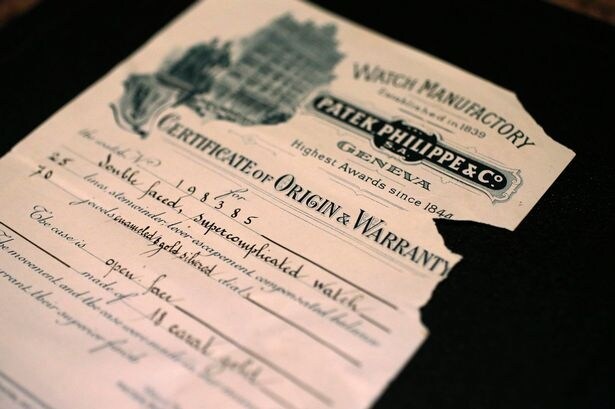 WATCH MANUFACTORY
Established in 1839
PATEK PHILIPPE & Cº
S.A.
GENEVA
Highest Awards since 1844
CERTIFICATE OF ORIGIN & WARRANTY
the watch Nº 198385 for
25 double faced, supercomplicated watch
70 lever escapement compensated balance
jewels enameled gold silvered dials
The case is open face
made of 18 carat gold
The movement and the case were made in
their superior finish